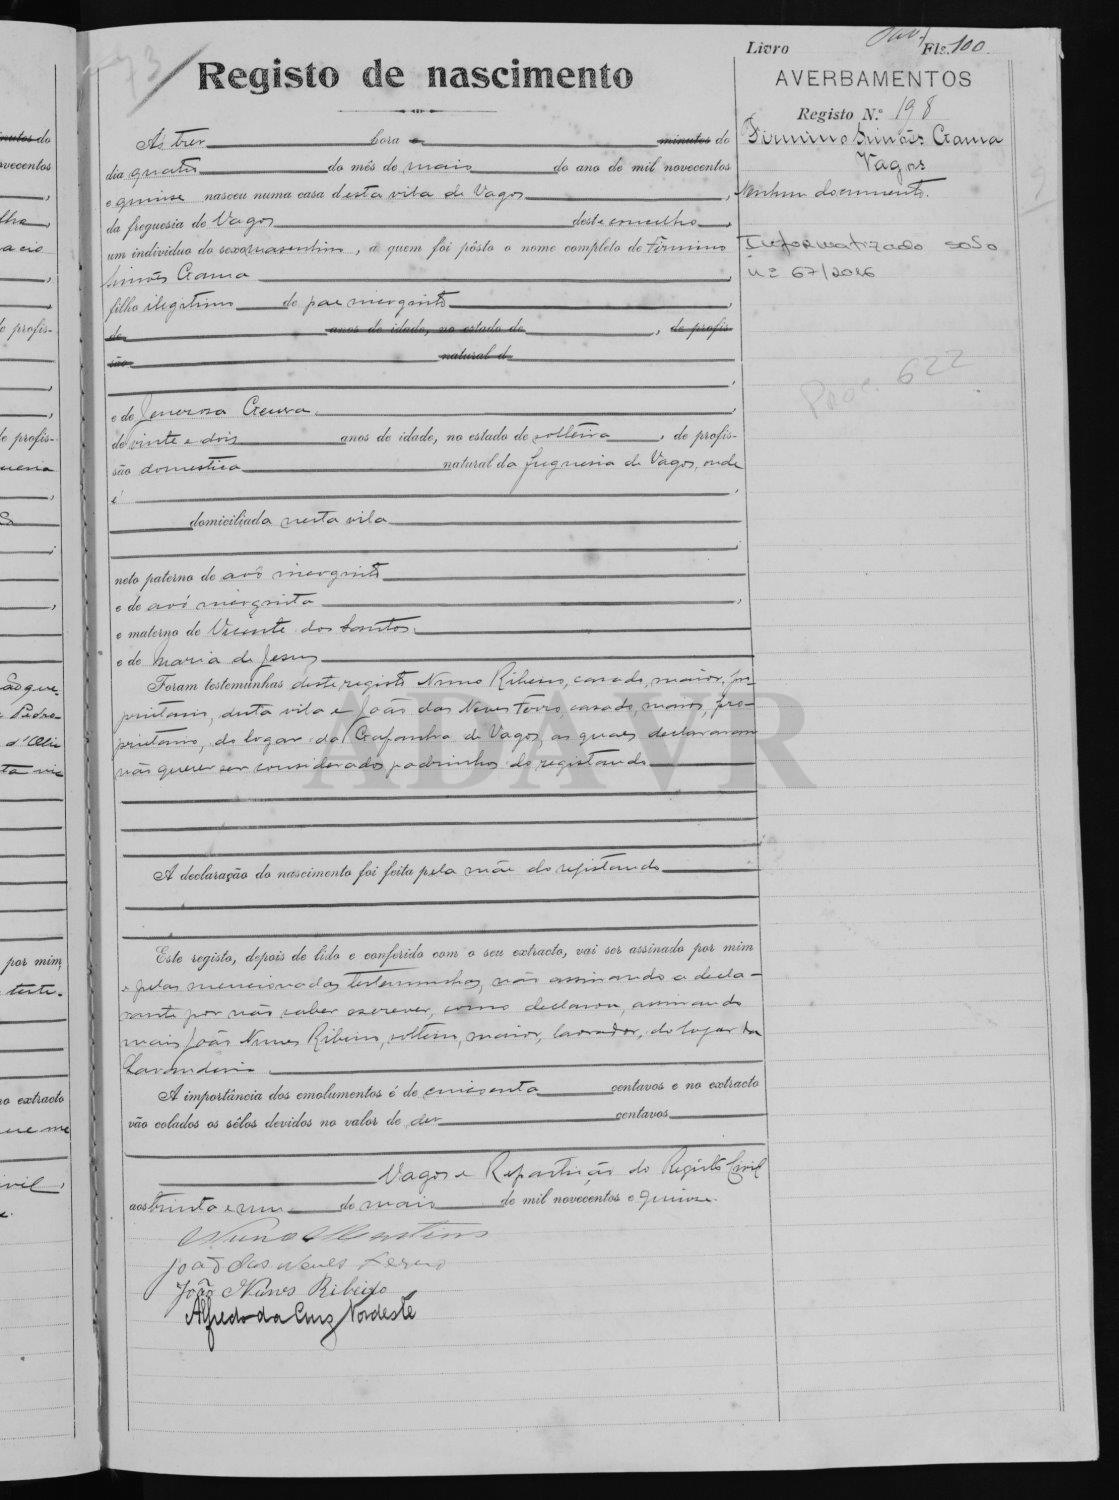 Livro Fls. 100
Registo de nascimento
AVERBAMENTOS
Registo N.º 198
Firmino Simões Crama
Vagos
Nenhum documento.
Informatizado sob o
nº 67/2016
Proc. 622
Às tres hora e minutos do
dia quatro do mês de maio do ano de mil novecentos
e quinse nasceu numa casa desta vila de Vagos,
da freguesia de Vagos deste concelho,
um indivíduo do sexo masculino, a quem foi pôsto o nome completo de Firmino
Simões Crama
filho ilegitimo de pae incognito,
de anos de idade, no estado de, de profis-
são natural d
e de Generosa Crama,
de vinte e dois anos de idade, no estado de solteira, de profis-
são domestica natural da freguesia de Vagos, onde
é,
domiciliada nesta vila
neto paterno de avô incognito
e de avó incognita,
e materno de Vicente dos Santos
e de Maria de Jesus
Foram testemunhas deste registo Nuno, casado, maior, pro-
prietario, desta vila e João das Neves Ferro, casado, maior, pro-
prietario, do logar da Gafanha de Vagos, os quaes declararam
não querer ser considerados padrinhos do registando
A declaração do nascimento foi feita pela mãe do registando
Este registo, depois de lido e conferido com o seu extracto, vai ser assinado por mim
e pelas mencionadas testemunhas, não assinando a decla-
rante por não saber escrever, como declarou, assinando
mais João Nunes Ribeiro, solteiro, maior, lavrador, do logar da
A importância dos emolumentos é de cincoenta centavos e no extracto
vão colados os sêlos devidos no valor de dez centavos
Vagos e Repartição do Registo Civil
aos trinta e um de maio de mil novecentos e quinse.
Nuno Martins
João das Neves Ferro
João Nunes Ribeiro
Alfredo da Cruz Nordeste
ADAVR